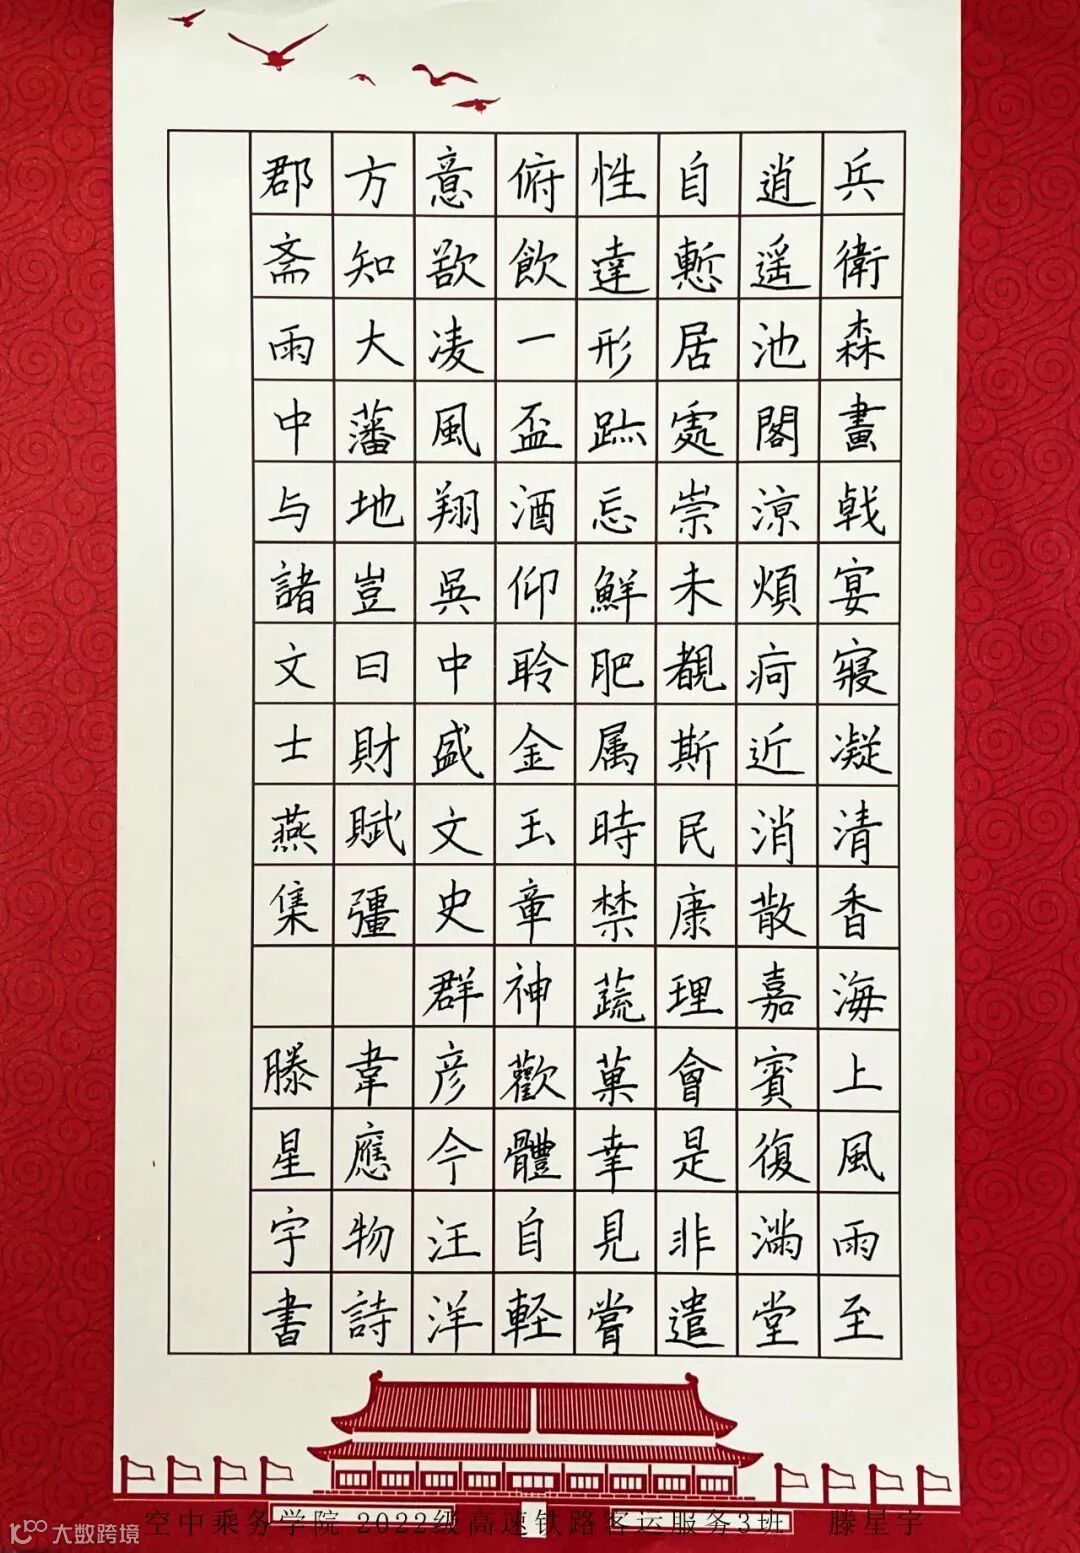 兵衛森畫戟宴寢凝清香海上風雨至
逍遥池閣涼煩疴近消散嘉賓復滿堂
自慙居處崇未覩斯民康理會是非遣
性達形跡忘鮮肥属時禁蔬菓幸見嘗
俯飲一盃酒仰聆金玉章神歡體自軽
意欲凌風翔吳中盛文史群彦今汪洋
方知大藩地豈曰財賦彊 韋應物詩
郡斋雨中与諸文士燕集 滕星宇書
空中乘务学院 2022级高速铁路客运服务3班 滕星宇
大数跨境